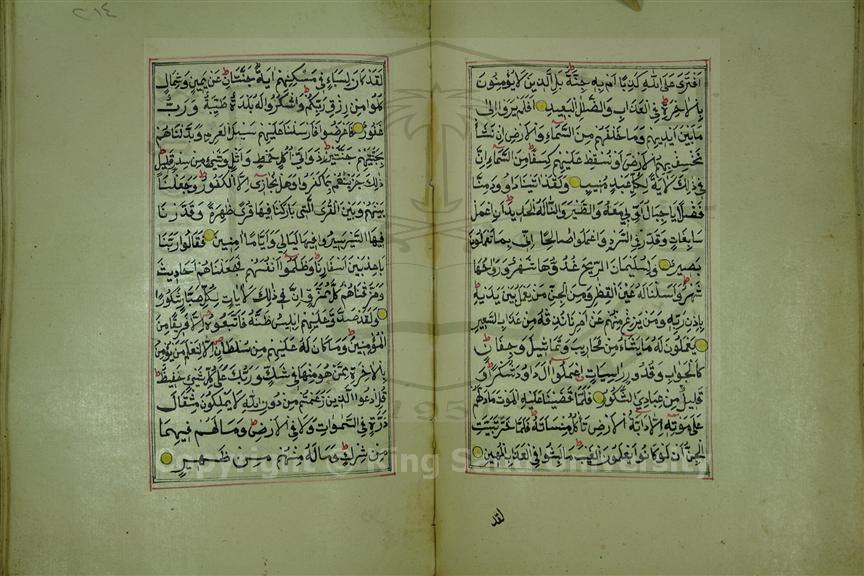 افترى على الله كذبا ام به جنة بل الذين لا يؤمنون
بالاخرة في العذاب والضلال البعيد افلم يروا الى
ما بين ايديهم وما خلفهم من السماء والارض ان نشأ
نخسف بهم الارض او نسقط عليهم كسفا من السماء ان
في ذلك لاية لكل عبد منيب ولقد اتينا داود منا
فضلا يا جبال اوبي معه والطير والنا له الحديد ان اعمل
سابغات وقدر في السرد واعملوا صالحا اني بما تعملون
بصير ولسليمان الريح غدوها شهر ورواحها
شهر واسلنا له عين القطر ومن الجن من يعمل بين يديه
باذن ربه ومن يزغ منهم عن امرنا نذقه من عذاب السعير
يعملون له ما يشاء من محاريب وتماثيل وجفان
كالجواب وقدور راسيات اعملوا آل داود شكرا و
قليل من عبادي الشكور فلما قضينا عليه الموت ما دلهم
على موته الا دابة الارض تأكل منسأته فلما خر تبينت
الجن ان لو كانوا يعلمون الغيب ما لبثوا في العذاب المهين
لقد
٢١٤
لقد كان لسباء في مسكنهم اية جنتان عن يمين وشمال
كلوا من رزق ربكم واشكروا له بلدة طيبة ورب
غفور فاعرضوا فارسلنا عليهم سيل العرم وبدلناهم
بجنتيهم جنتين ذواتي اكل خمط واثل وشئ من سدر قليل
ذلك جزيناهم بما كفروا وهل نجازي الا الكفور وجعلنا
بينهم وبين القرى التي باركنا فيها قرى ظهرة وقدرنا
فيها السير سيروا فيها ليالي واياما امنين فقالوا ربنا
باعد بين اسفارنا وظلموا انفسهم فجعلناهم احاديث
ومزقناهم كل ممزق ان في ذلك لايات لكل صبار شكور
ولقد صدق عليهم ابليس ظنه فاتبعوه الا فريقا من
المؤمنين وما كان له عليهم من سلطان الا لنعلم من يؤمن
بالاخرة ممن هو منها في شك وربك على كل شئ حفيظ
قل ادعوا الذين زعمتم من دون الله لا يملكون مثقال
ذرة في السموات ولا في الارض وما لهم فيهما
من شرك وما له منهم من ظهير
Copyright © King Saud University
1957